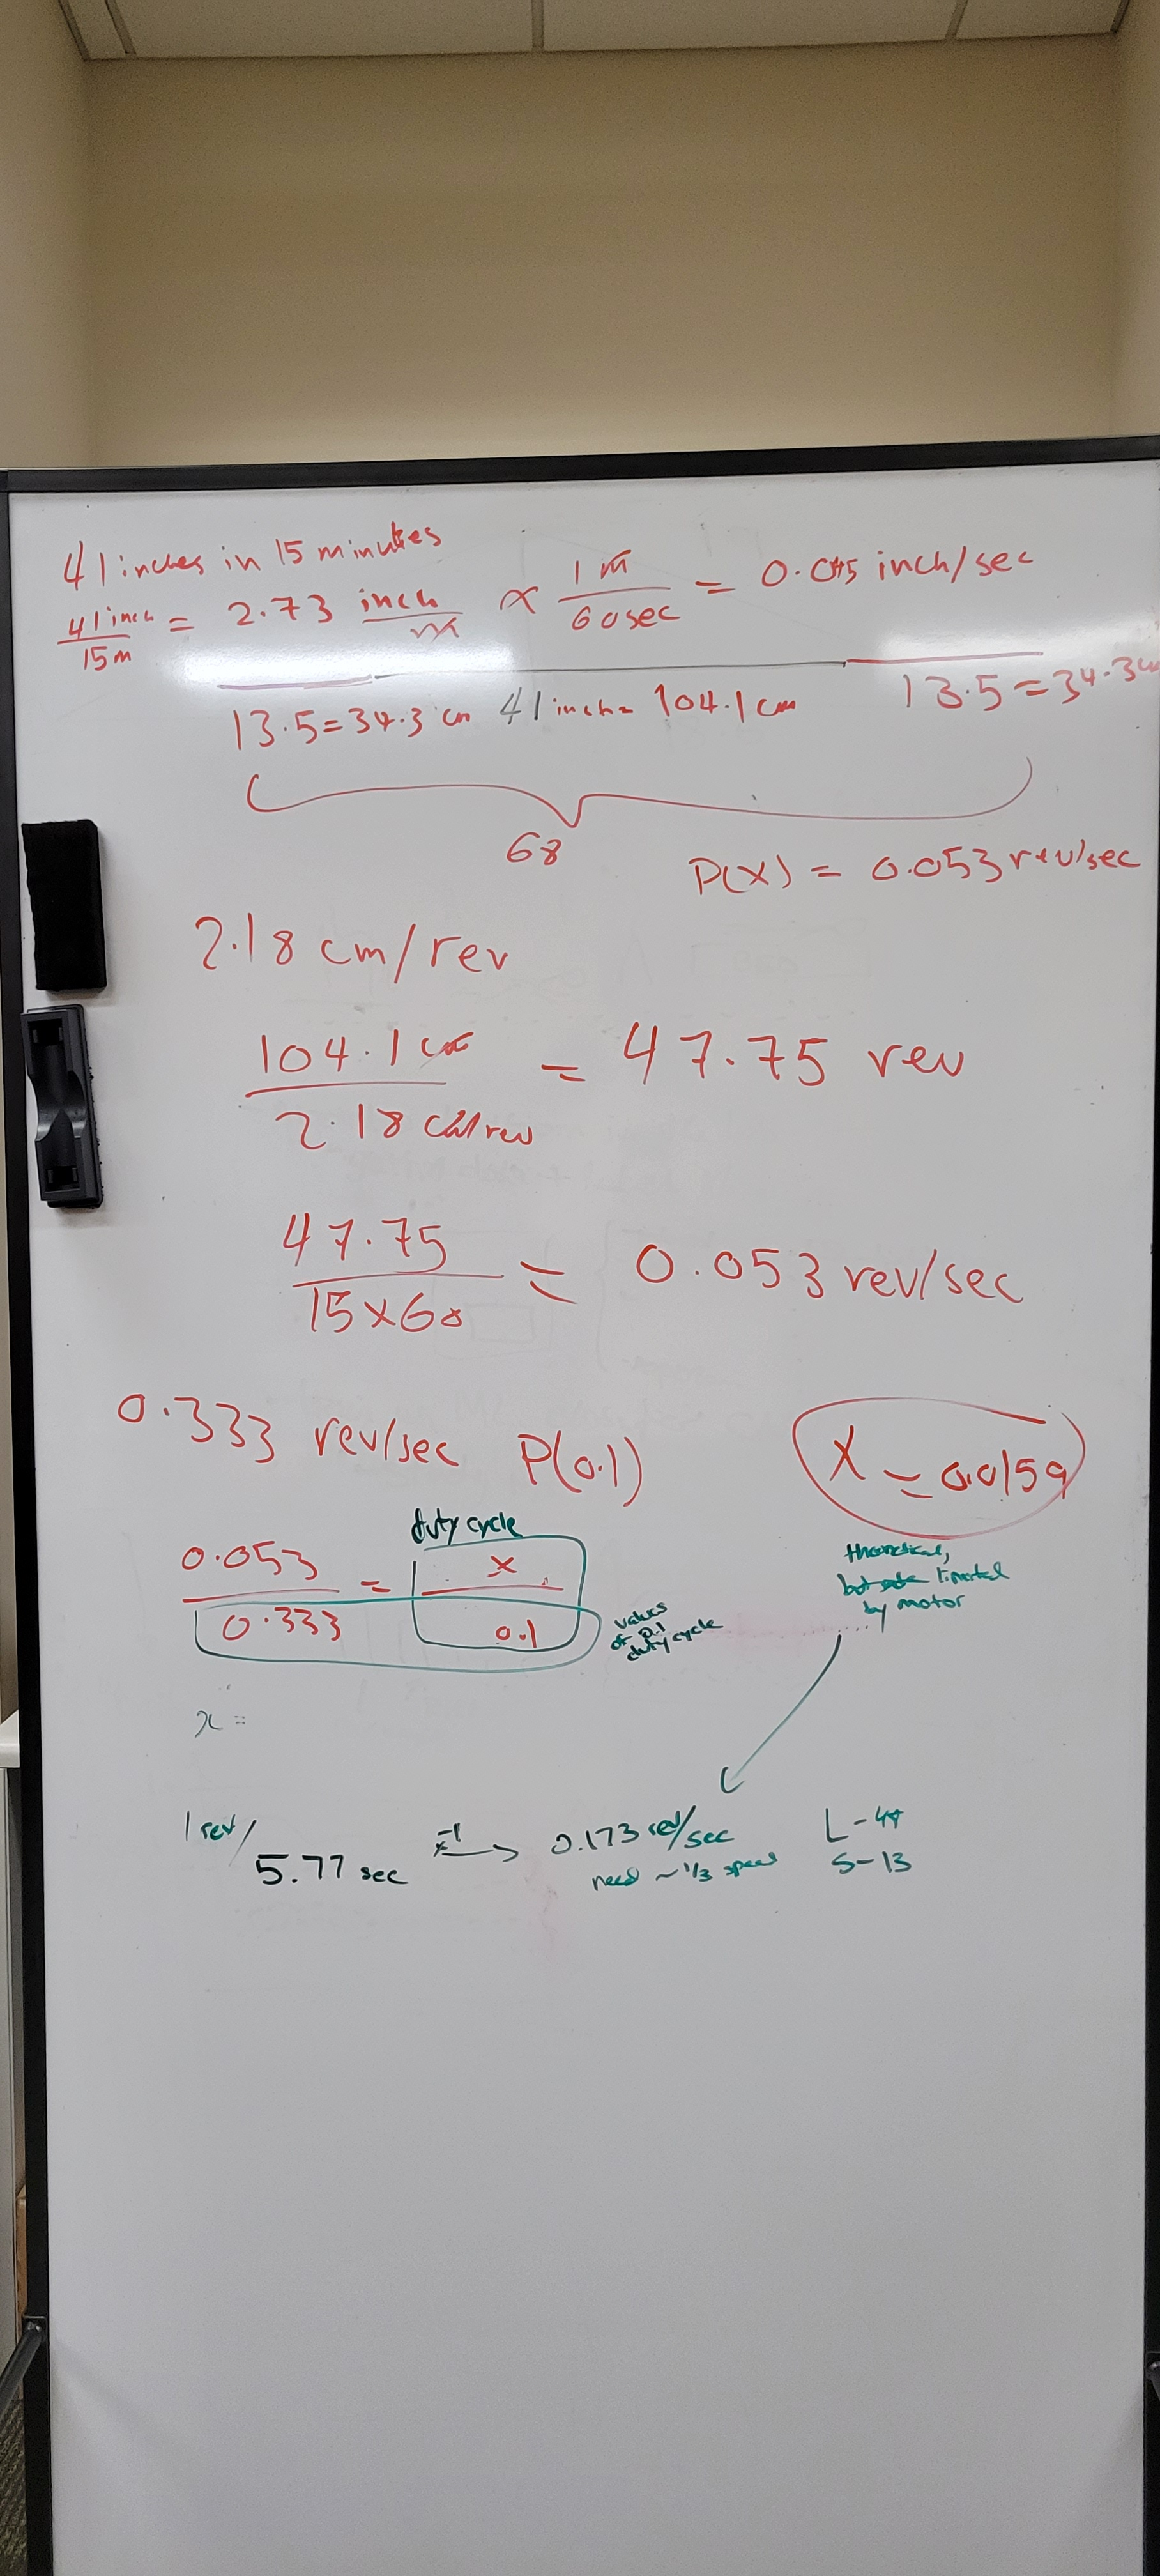 41 inches in 15 minutes
41 inch / 15 m = 2.73 inch/m × 1 m / 60 sec = 0.045 inch/sec
13.5 = 34.3 cm 41 inch = 104.1 cm 13.5 = 34.3 cm
68
P(X) = 0.053 rev/sec
2.18 cm/rev
104.1 cm / 2.18 cm/rev = 47.75 rev
47.75 / 15×60 = 0.053 rev/sec
0.333 rev/sec P(0.1)
X = 0.0159
duty cycle
0.053 / 0.333 = x / 0.1
values
of 0.1
duty cycle
theoretical,
but limited
by motor
x =
1 rev / 5.77 sec x⁻¹ → 0.173 rev/sec
need ~1/3 speed
L-44
S-13